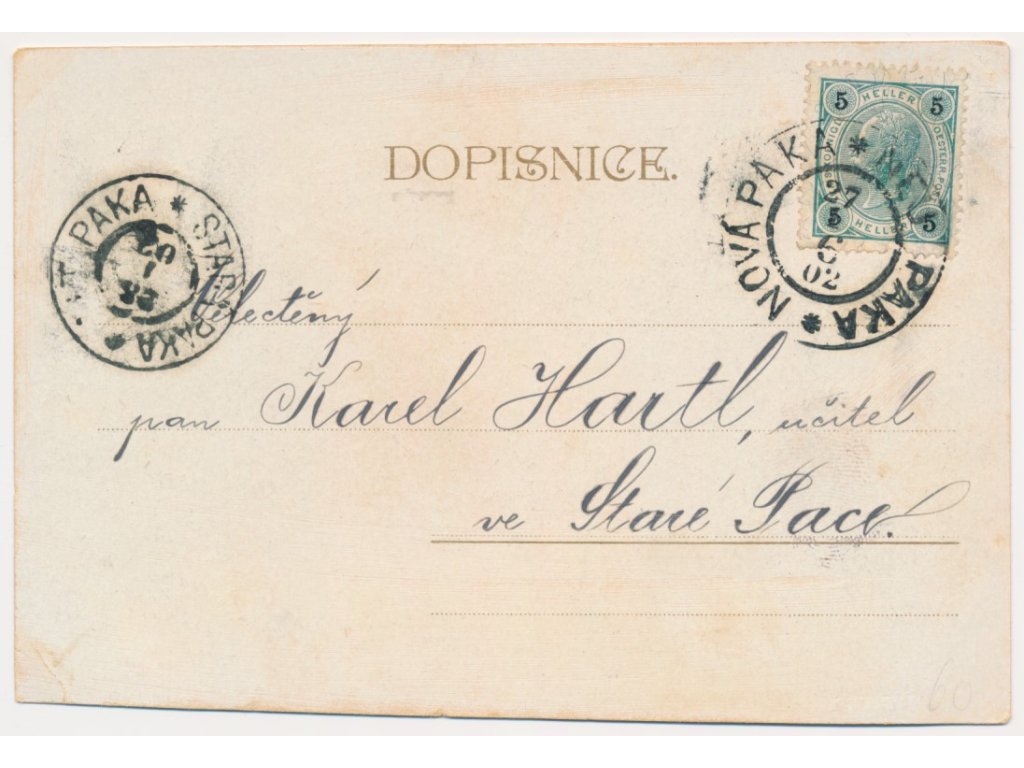 DOPISNICE.
5 HELLER 5
5 HELLER 5
NOVÁ PAKA * PAKA *
27
5
02
PAKA * STARÁ PAKA *
Velectěný
pan Karel Hartl, učitel
ve Staré Pace.
60